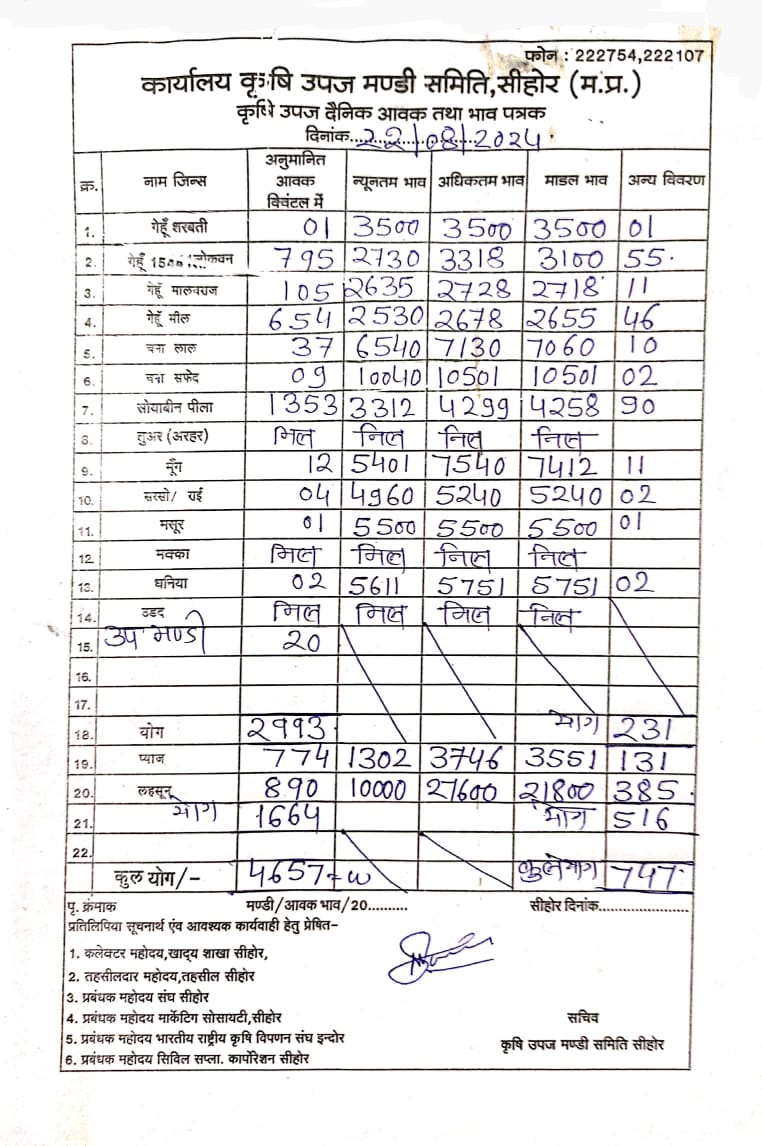 फोन : 222754,222107
कार्यालय कृषि उपज मण्डी समिति,सीहोर (म.प्र.)
कृषि उपज दैनिक आवक तथा भाव पत्रक
दिनांक...22/08/2024
क्र. नाम जिन्स अनुमानित आवक क्विंटल में न्यूनतम भाव अधिकतम भाव माडल भाव अन्य विवरण
1. गेहूँ शरबती 01 3500 3500 3500 01
2. गेहूँ लोकवन 795 2730 3318 3100 55
3. गेहूँ मालवराज 105 2635 2728 2718 11
4. गेहूँ मील 654 2530 2678 2655 46
5. चना लाल 37 6540 7130 7060 10
6. चना सफेद 09 10040 10501 10501 02
7. सोयाबीन पीला 1353 3312 4299 4258 90
8. तुअर (अरहर) निल निल निल निल
9. मूँग 12 5401 7540 7412 11
10. सरसो/ राई 04 4960 5240 5240 02
11. मसूर 01 5500 5500 5500 01
12 मक्का निल निल निल निल
13. धनिया 02 5611 5751 5751 02
14. उडद निल निल निल निल
15. उप मण्डी 20
16.
17.
18. योग 2993 योग 231
19. प्याज 774 1302 3746 3551 131
20. लहसून 890 10000 27600 21800 385
21. योग 1664 योग 516
22.
कुल योग/- 4657 कुल योग 747
पृ. क्रंमाक मण्डी/आवक भाव/20.......... सीहोर दिनांक.......................
प्रतिलिपिया सूचनार्थ एंव आवश्यक कार्यवाही हेतु प्रेषित–
1. कलेक्टर महोदय,खाद्य शाखा सीहोर,
2. तहसीलदार महोदय,तहसील सीहोर
3. प्रबंधक महोदय संघ सीहोर
4. प्रबंधक महोदय मार्केटिग सोसायटी,सीहोर
5. प्रबंधक महोदय भारतीय राष्ट्रीय कृषि विपणन संघ इन्दोर
6. प्रबंधक महोदय सिविल सप्ला. कार्पोरेशन सीहोर
सचिव
कृषि उपज मण्डी समिति सीहोर